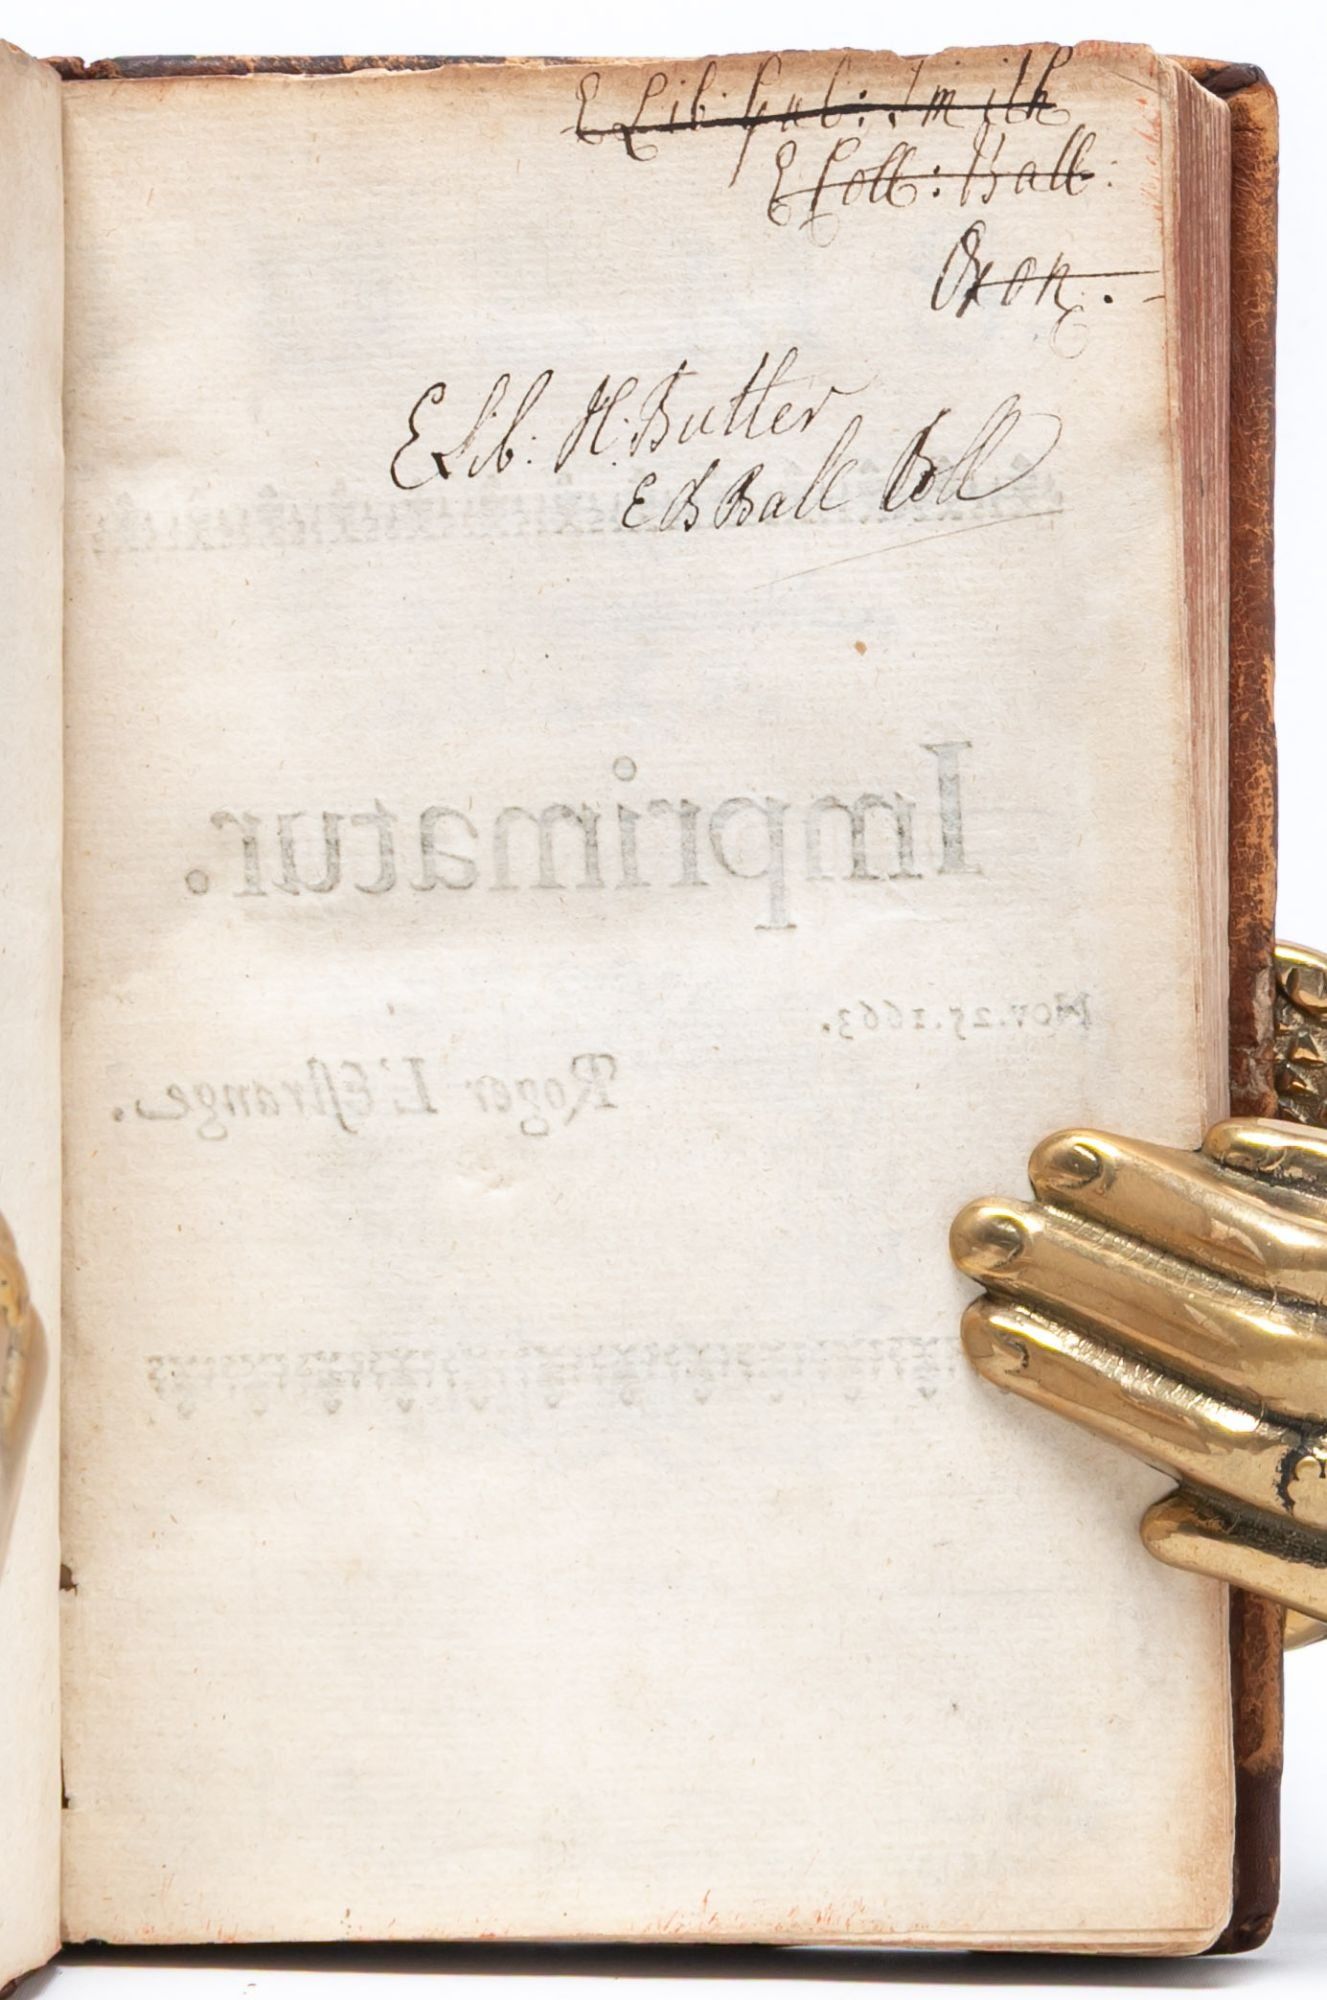 E Lib: Gul: Smith
E Coll: Ball:
Oxon.
E Lib: H: Butler
E B Ball Coll
Imprimatur.
Nov. 25. 1663.
Roger L'Eſtrange.